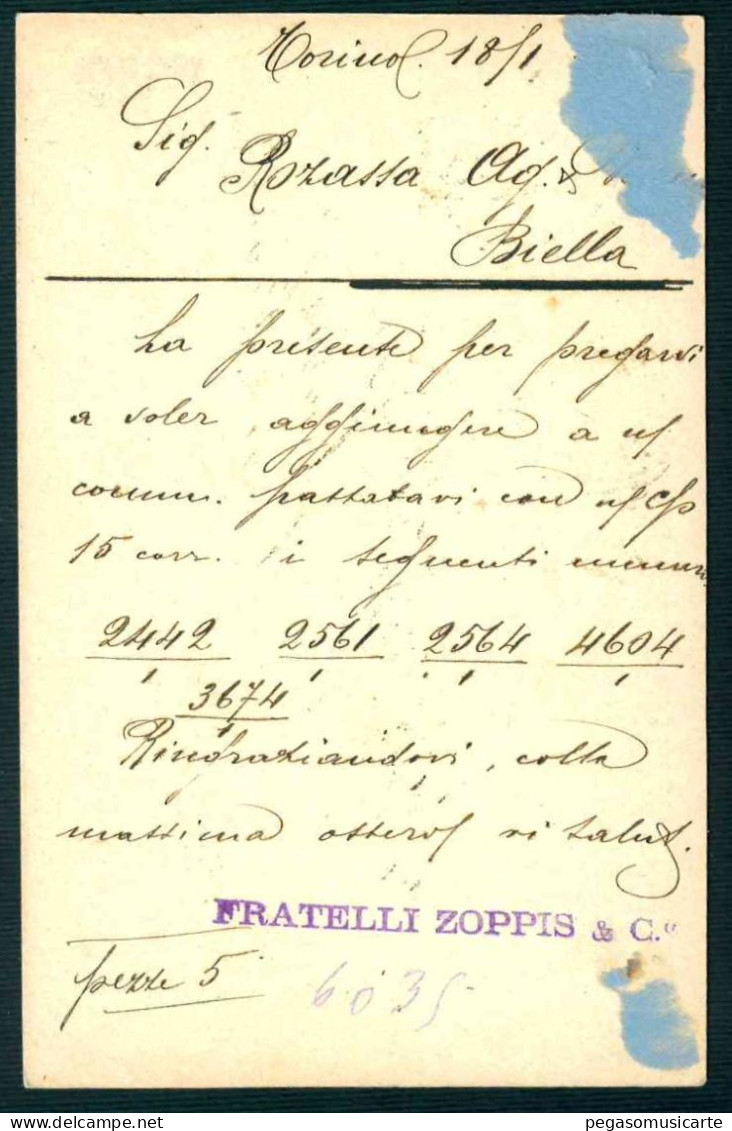 Torino 18/1
Sig. Rzassa Ag. &
Biella
La presente per pregarvi
a voler aggiungere a n/
comm. passatavi con n/ c/p
15 corr. i seguenti numeri
2442 2561 2564 4604
1 1 1 1
3674
1
Ringraziandovi, colla
massima osserv/ vi salut.
FRATELLI ZOPPIS & C.º
pezze 5
6035
pegasomusicarte